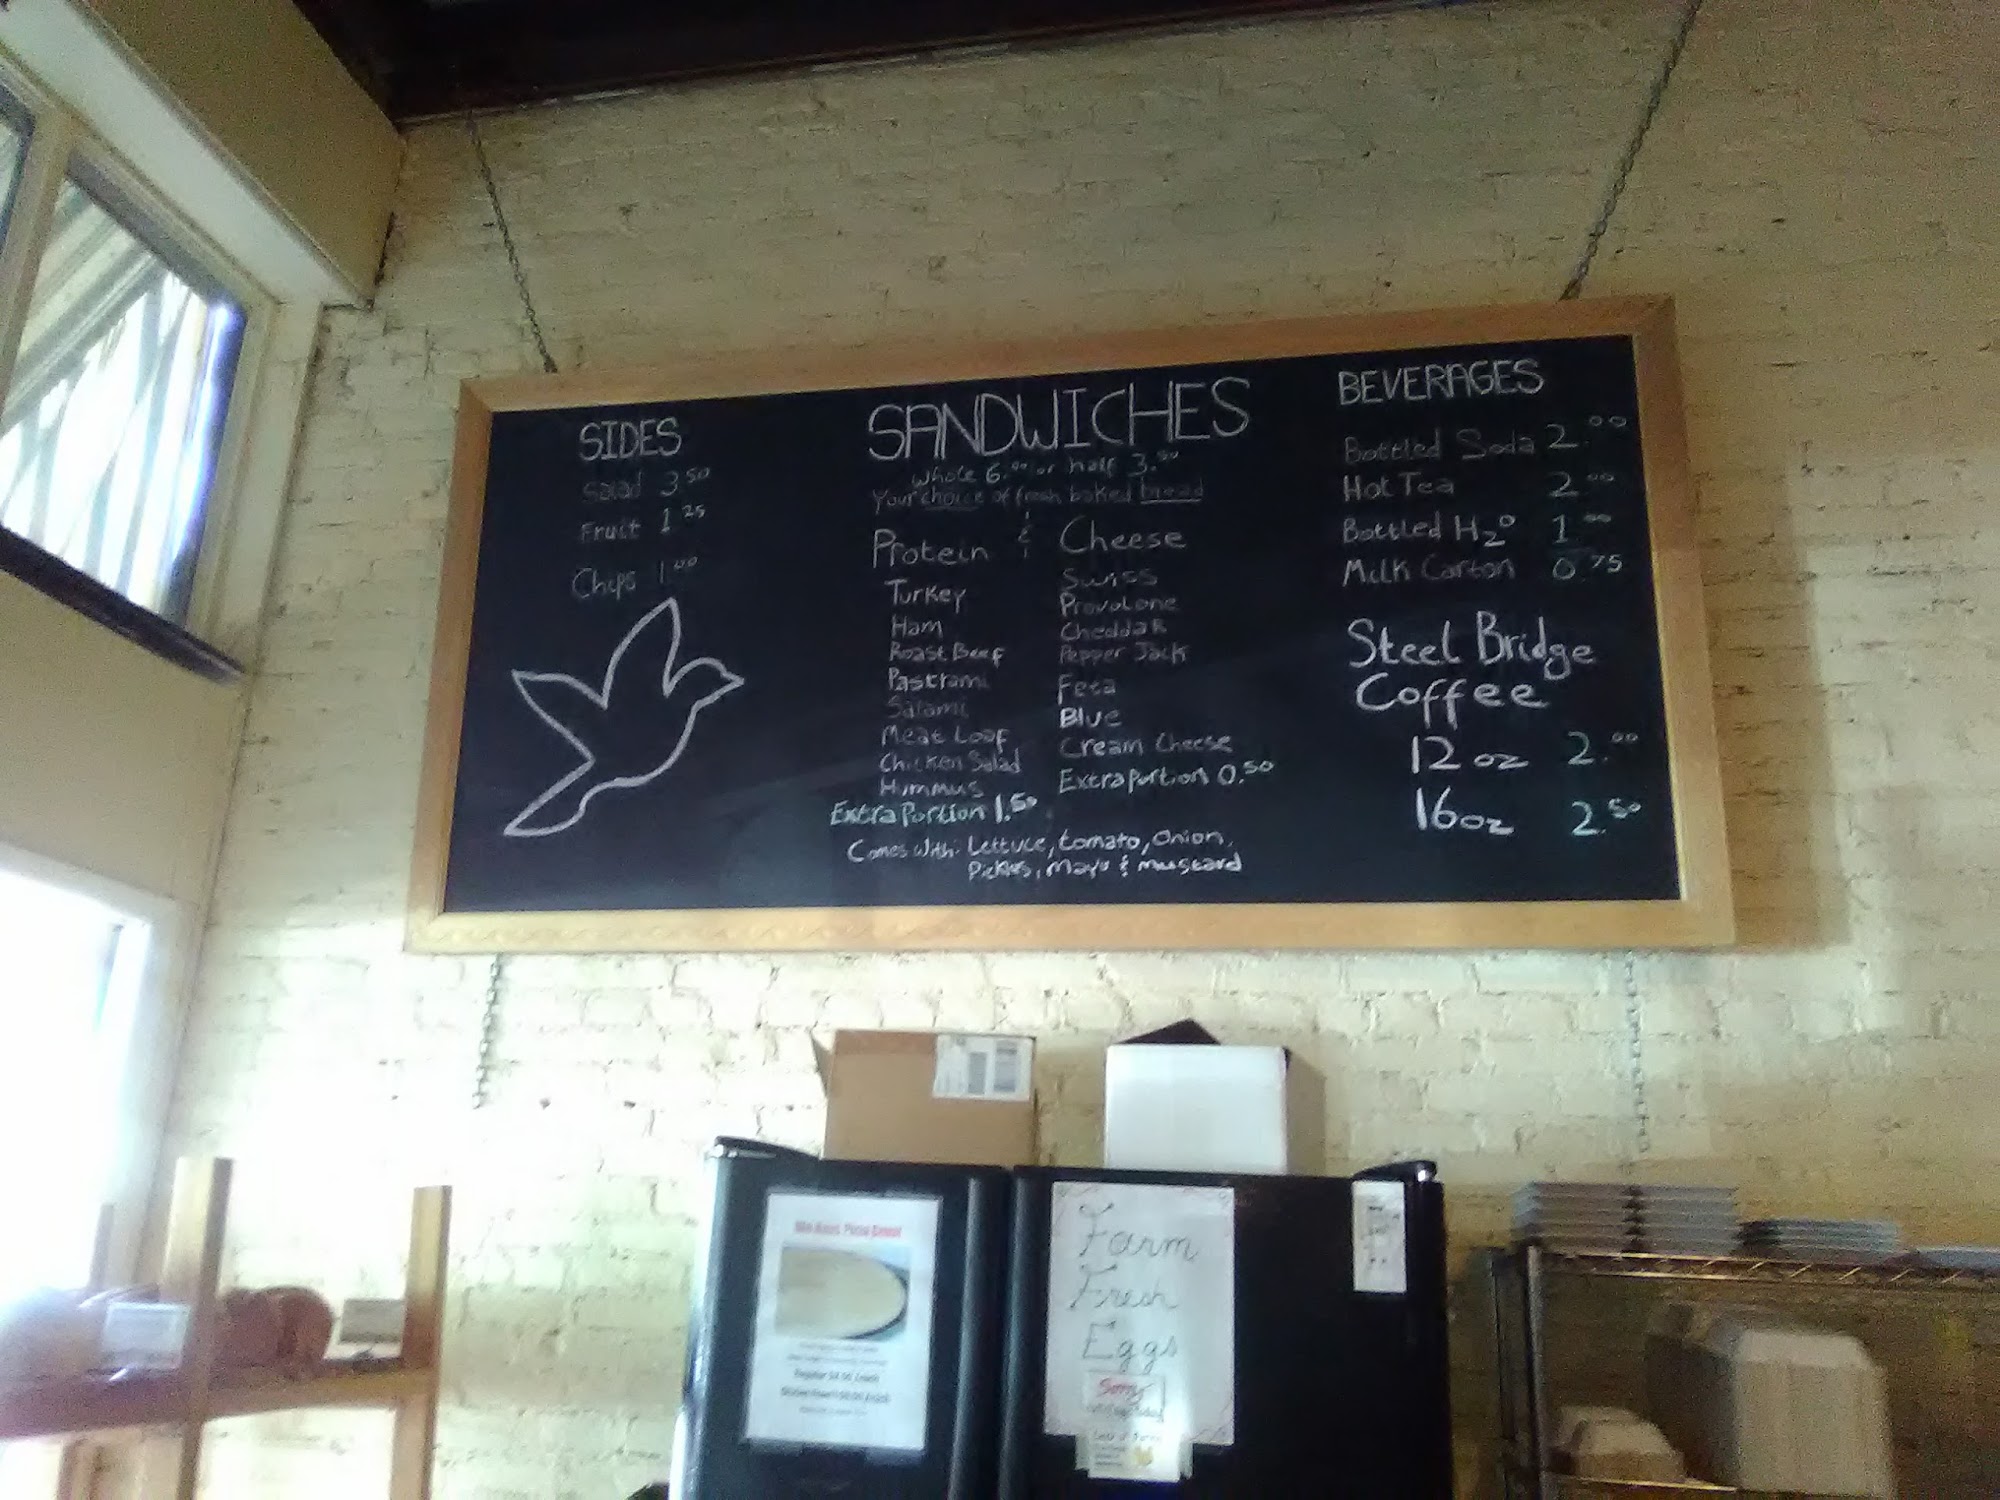 SIDES
Salad 3.50
Fruit 1.25
Chips 1.00
SANDWICHES
Whole 6.00 or half 3.50
Your choice of fresh baked bread
Protein & Cheese
Turkey
Ham
Roast Beef
Pastrami
Salami
Meat Loaf
Chicken Salad
Hummus
Extra Portion 1.50
Swiss
Provolone
Cheddar
Pepper Jack
Feta
Blue
Cream Cheese
Extra Portion 0.50
Comes With: Lettuce, tomato, Onion,
Pickles, Mayo & mustard
BEVERAGES
Bottled Soda 2.00
Hot Tea 2.00
Bottled H2O 1.00
Milk Carton 0.75
Steel Bridge
Coffee
12 oz 2.00
16 oz 2.50
Farm
Fresh
Eggs
Sorry